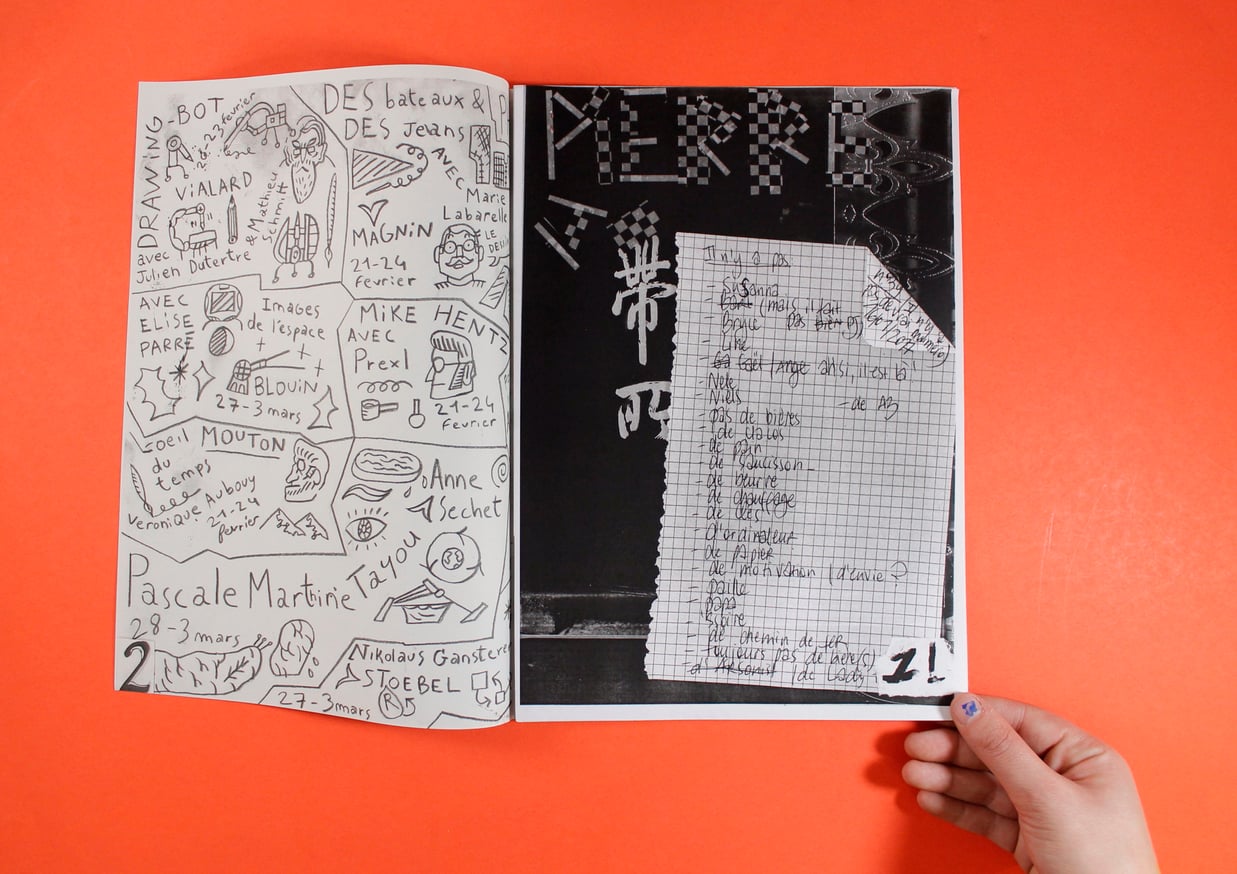 DRAWING-BOT
20-23 février
ViALARD
avec
Julien Dutertre
& Mathieu
Schmitt
DES bateaux &
DES Jeans
AVEC
Marie
Labarelle
MAGNiN
LE
21-24
fevrier
AVEC
ELiSE
PARRÉ
Images
de l'espace
BLOUiN
27-3 mars
MiKE HENTZ
AVEC
Prexl
21-24
fevrier
L'oeil
du
temps
MOUTON
Veronique Aubouy
21-24
fevrier
Anne
Sechet
Pascale Marthine Tayou
28-3 mars
2
Nikolaus Gansterer
STOEBEL
27-3mars
R5
PIERRE
A
帶
Il n'y a pas
- Susanna
- (mais il fait
- Bryce pas
- Line
ah si, il est là !
- Nele
- Niels
- de A3
- pas de bières
- de pain
- de saucisson
- de beurre
- de chauffage
- de clés
- d'ordinateur
- de papier
- de motivation / d'envie ?
- paille
- papa
- de chemin de fer
- toujours pas de bière(s)
1!